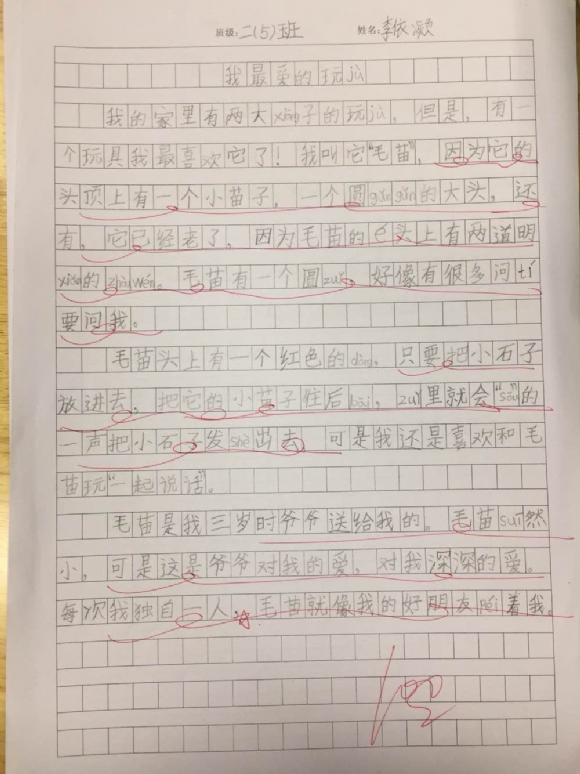 班级：二(5)班 姓名：李依凝
我最爱的玩jù
我的家里有两大xiāng子的玩jù，但是，有一
个玩具我最喜欢它了！我叫它“毛苗”，因为它的
头顶上有一个小苗子，一个圆gǔn gǔn的大头，还
有，它已经老了，因为毛苗的é头上有两道明
xiǎn的zhòu wén。毛苗有一个圆zuǐ，好像有很多问tí
要问我。
毛苗头上有一个红色的dòng，只要把小石子
放进去，把它的小苗子往后bāi，zuǐ里就会“sōu”的
一声把小石子发shè出去，可是我还是喜欢和毛
苗玩“一起说话”。
毛苗是我三岁时爷爷送给我的。毛苗suī然
小，可是这是爷爷对我的爱，对我深深的爱。
每次我独自一人，毛苗就像我的好朋友陪着我。